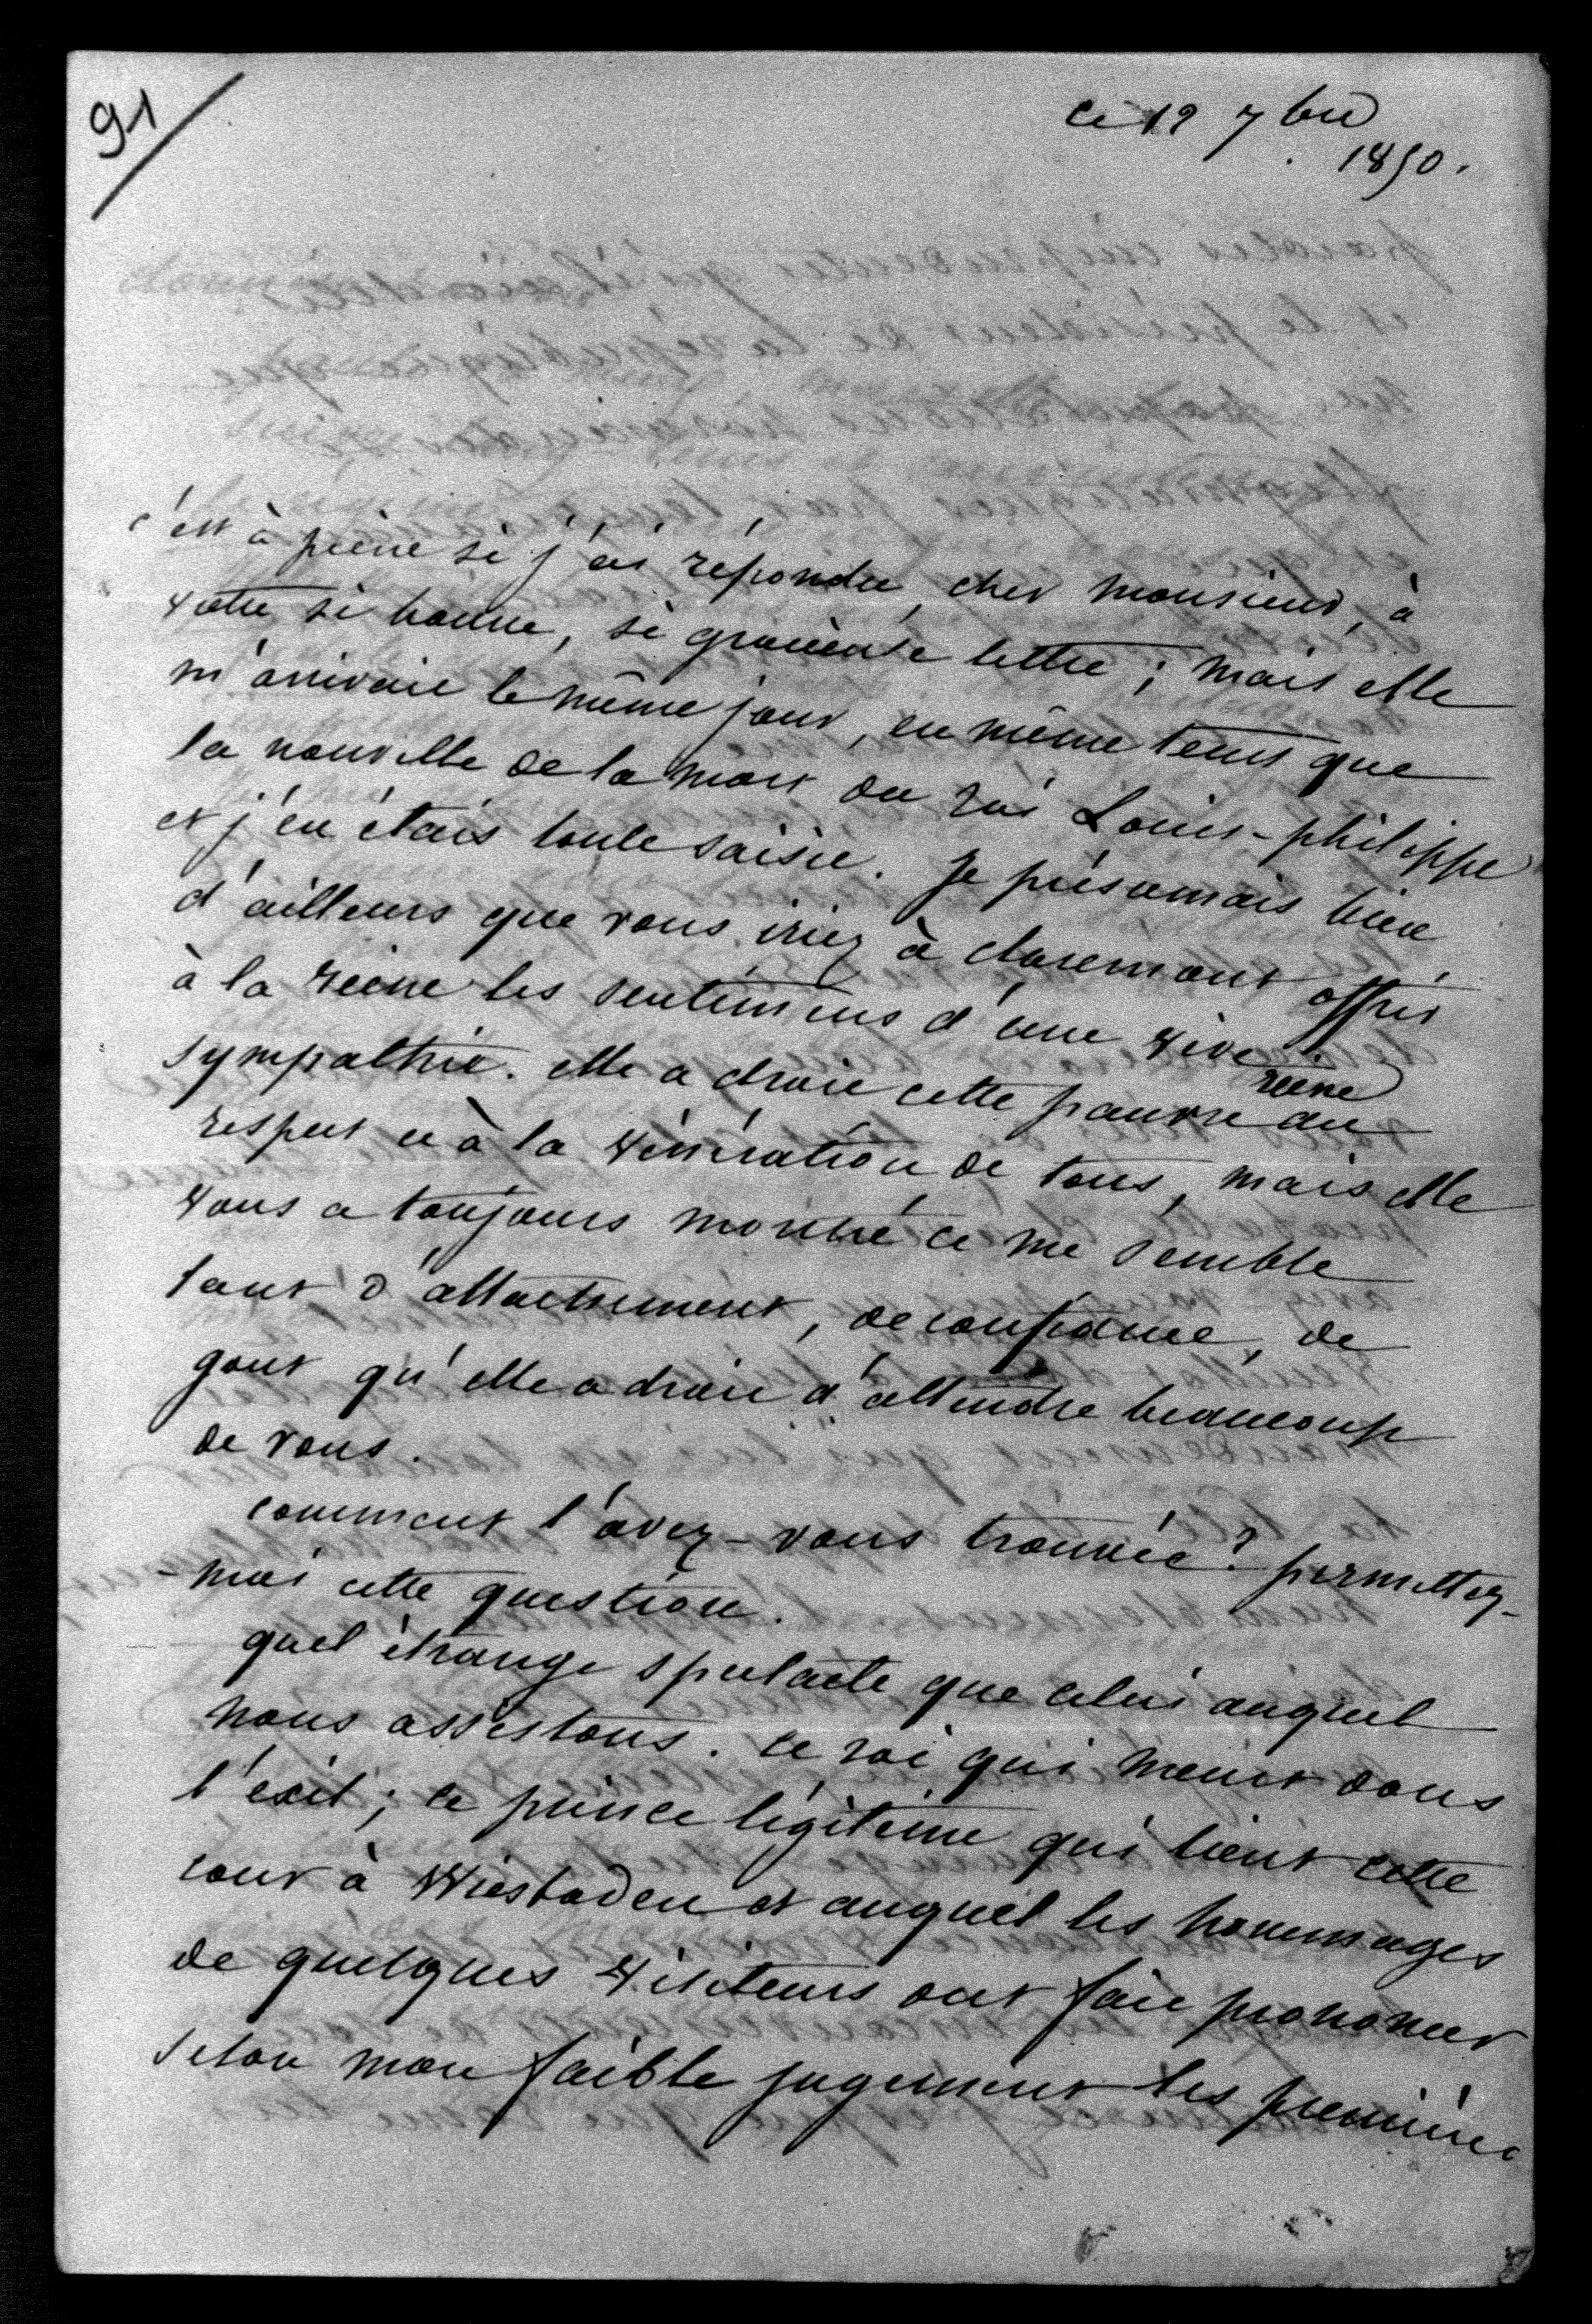 91
ce 12 7bre
1850.
c'est à peine si j'ai répondu, cher monsieur, à
votre si bonne, si gracieuse lettre ; mais elle
m'arrivait le même jour, en même tems que
la nouvelle de la mort du roi Louis-philippe
et j'en étais toute saisie. je présumais bien
d'ailleurs que vous iriez à claremont offrir
à la reine les sentimens d'une vive
sympathie. elle a droit cette pauvre reine au
respect et à la vénération de tous, mais elle
vous a toujours montré ce me semble
tant d'attachement, de confiance, de
gout qu'elle a droit d'attendre beaucoup
de vous.
comment l'avez-vous trouvée ? permettez-
-moi cette question.
quel étrange spectacle que celui auquel
nous assistons. ce roi qui meurt dans
l'exil ; ce prince légitime qui tient cette
cour à Wiesbaden et auquel les hommages
de quelques visiteurs ont fait prononcer
selon mon faible jugement les premières